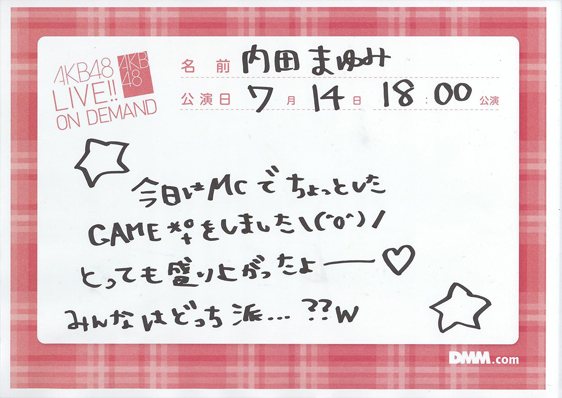 AKB48
LIVE!!
ON DEMAND
AKB
48
名前 内田まゆみ
公演日 7月14日 18:00公演
今日はMCでちょっとした
GAME*°+をしました\(^o^)/
とっても盛り上がったよー♡
みんなはどっち派...??w
DMM.com